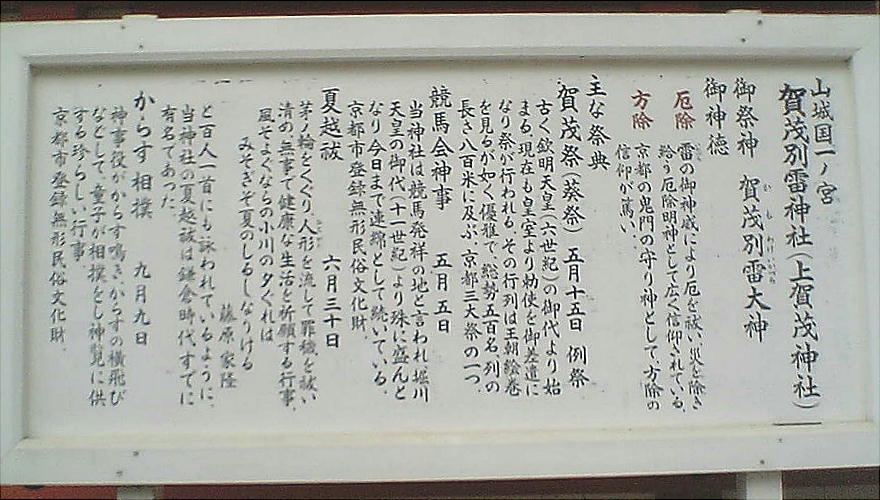 山城国一ノ宮
賀茂別雷神社(上賀茂神社)
御祭神　賀茂別雷大神
御神徳
厄除　雷の御神威により厄を祓い、災を除き
給う厄除明神として広く信仰されている。
方除　京都の鬼門の守り神として、方除の
信仰が篤い。
主な祭典
賀茂祭(葵祭)　五月十五日　例祭
古く欽明天皇(六世紀)の御代より始
まる。現在も皇室より勅使を御差遣に
なり祭が行われる。その行列は王朝絵巻
を見るが如く優雅で、総勢五百名列の
長さ八百米に及ぶ、京都三大祭の一つ。
競馬会神事　五月五日
当神社は競馬発祥の地と言われ堀川
天皇の御代(十一世紀)より殊に盛んと
なり今日まで連綿として続いている。
京都市登録無形民俗文化財。
夏越祓　六月三十日
茅ノ輪をくぐり人形を流して罪穢を祓い
清め無事で健康な生活を祈願する行事。
風そよぐならの小川の夕ぐれは
みそぎぞ夏のしるしなりける
藤原家隆
と百人一首にも詠われているように、
当神社の夏越祓は鎌倉時代すでに
有名であった。
からす相撲　九月九日
神事役がからす鳴き、からすの横飛び
などして、童子が相撲をし神覧に供
する珍らしい行事。
京都市登録無形民俗文化財。